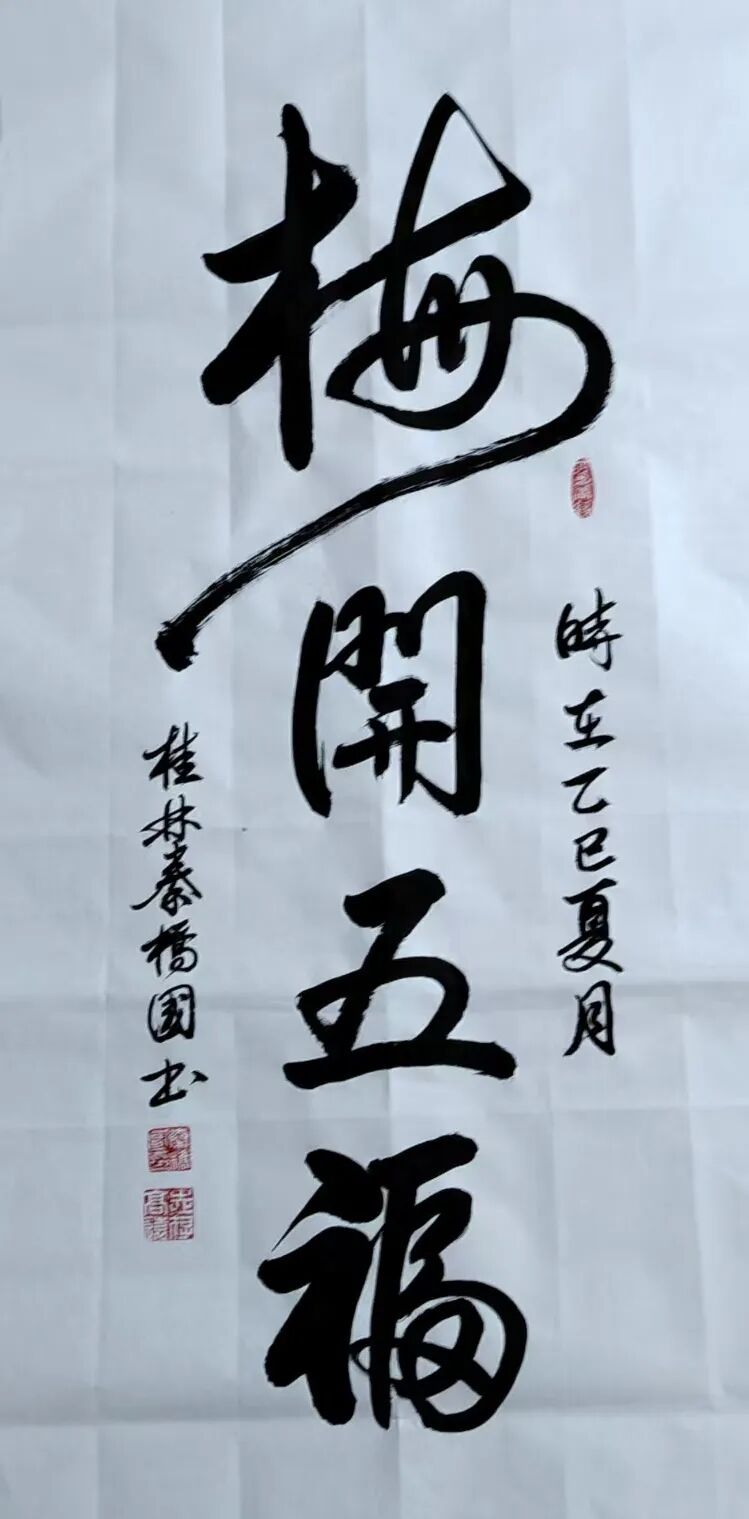 梅開五福
時在乙巳夏月
桂林秦橋國書